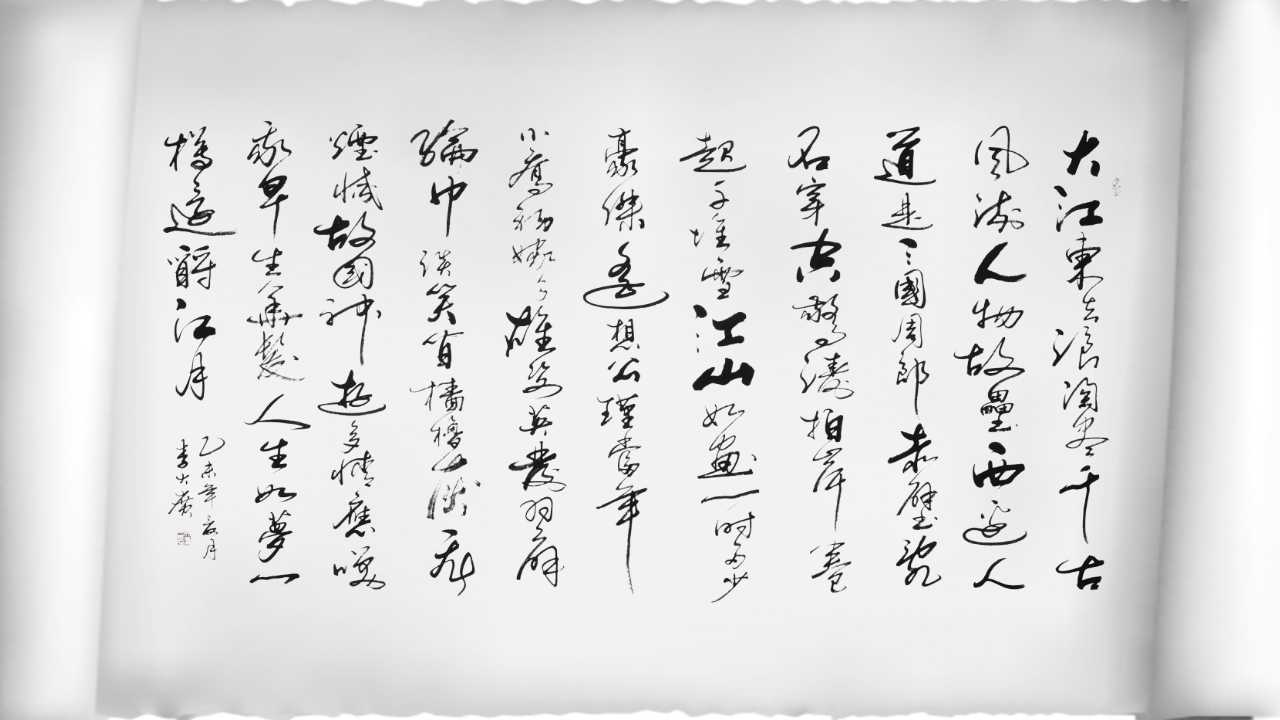 大江東去浪淘盡千古
風流人物故壘西邊人
道是三國周郎赤壁亂
石穿空驚濤拍岸卷
起千堆雪江山如畫一時多少
豪傑遙想公瑾當年
小喬初嫁了雄姿英發羽扇
綸巾談笑間檣櫓灰飛
煙滅故國神遊多情應笑
我早生華髮人生如夢一
樽還酹江月
乙未年夏月
李大